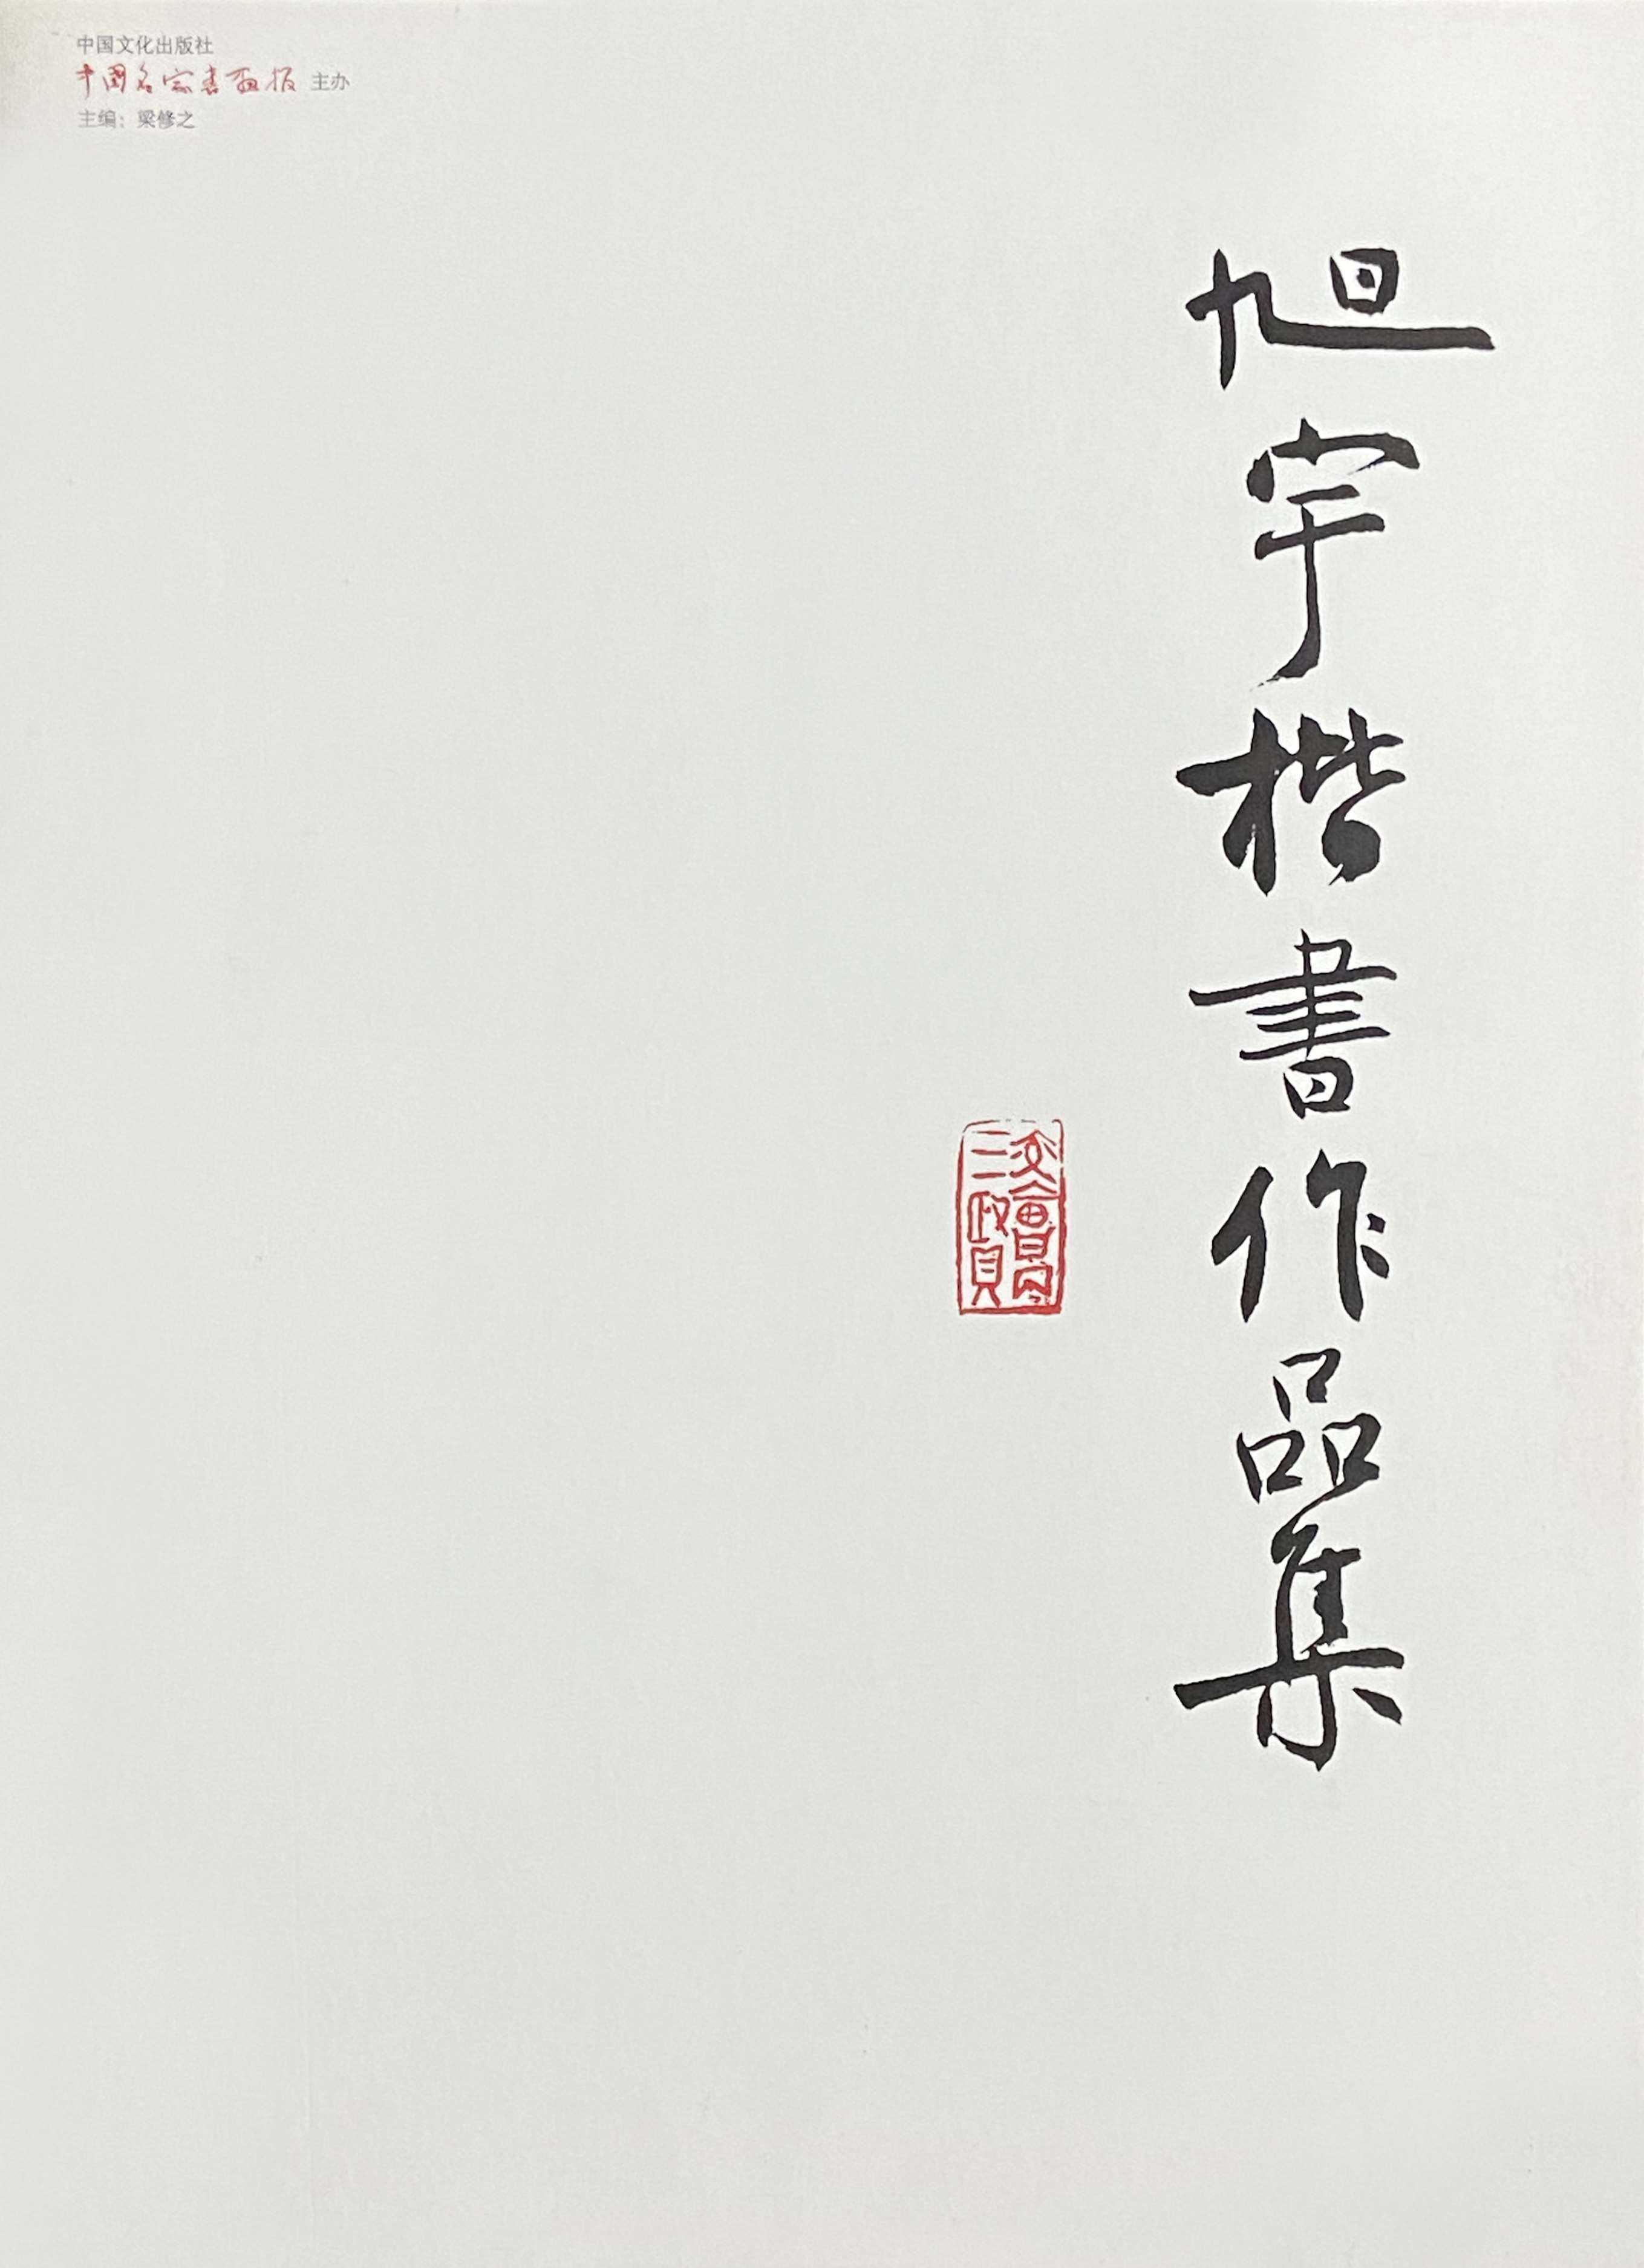 中国文化出版社
中國名家書畫报 主办
主编：梁修之
旭宇楷書作品集